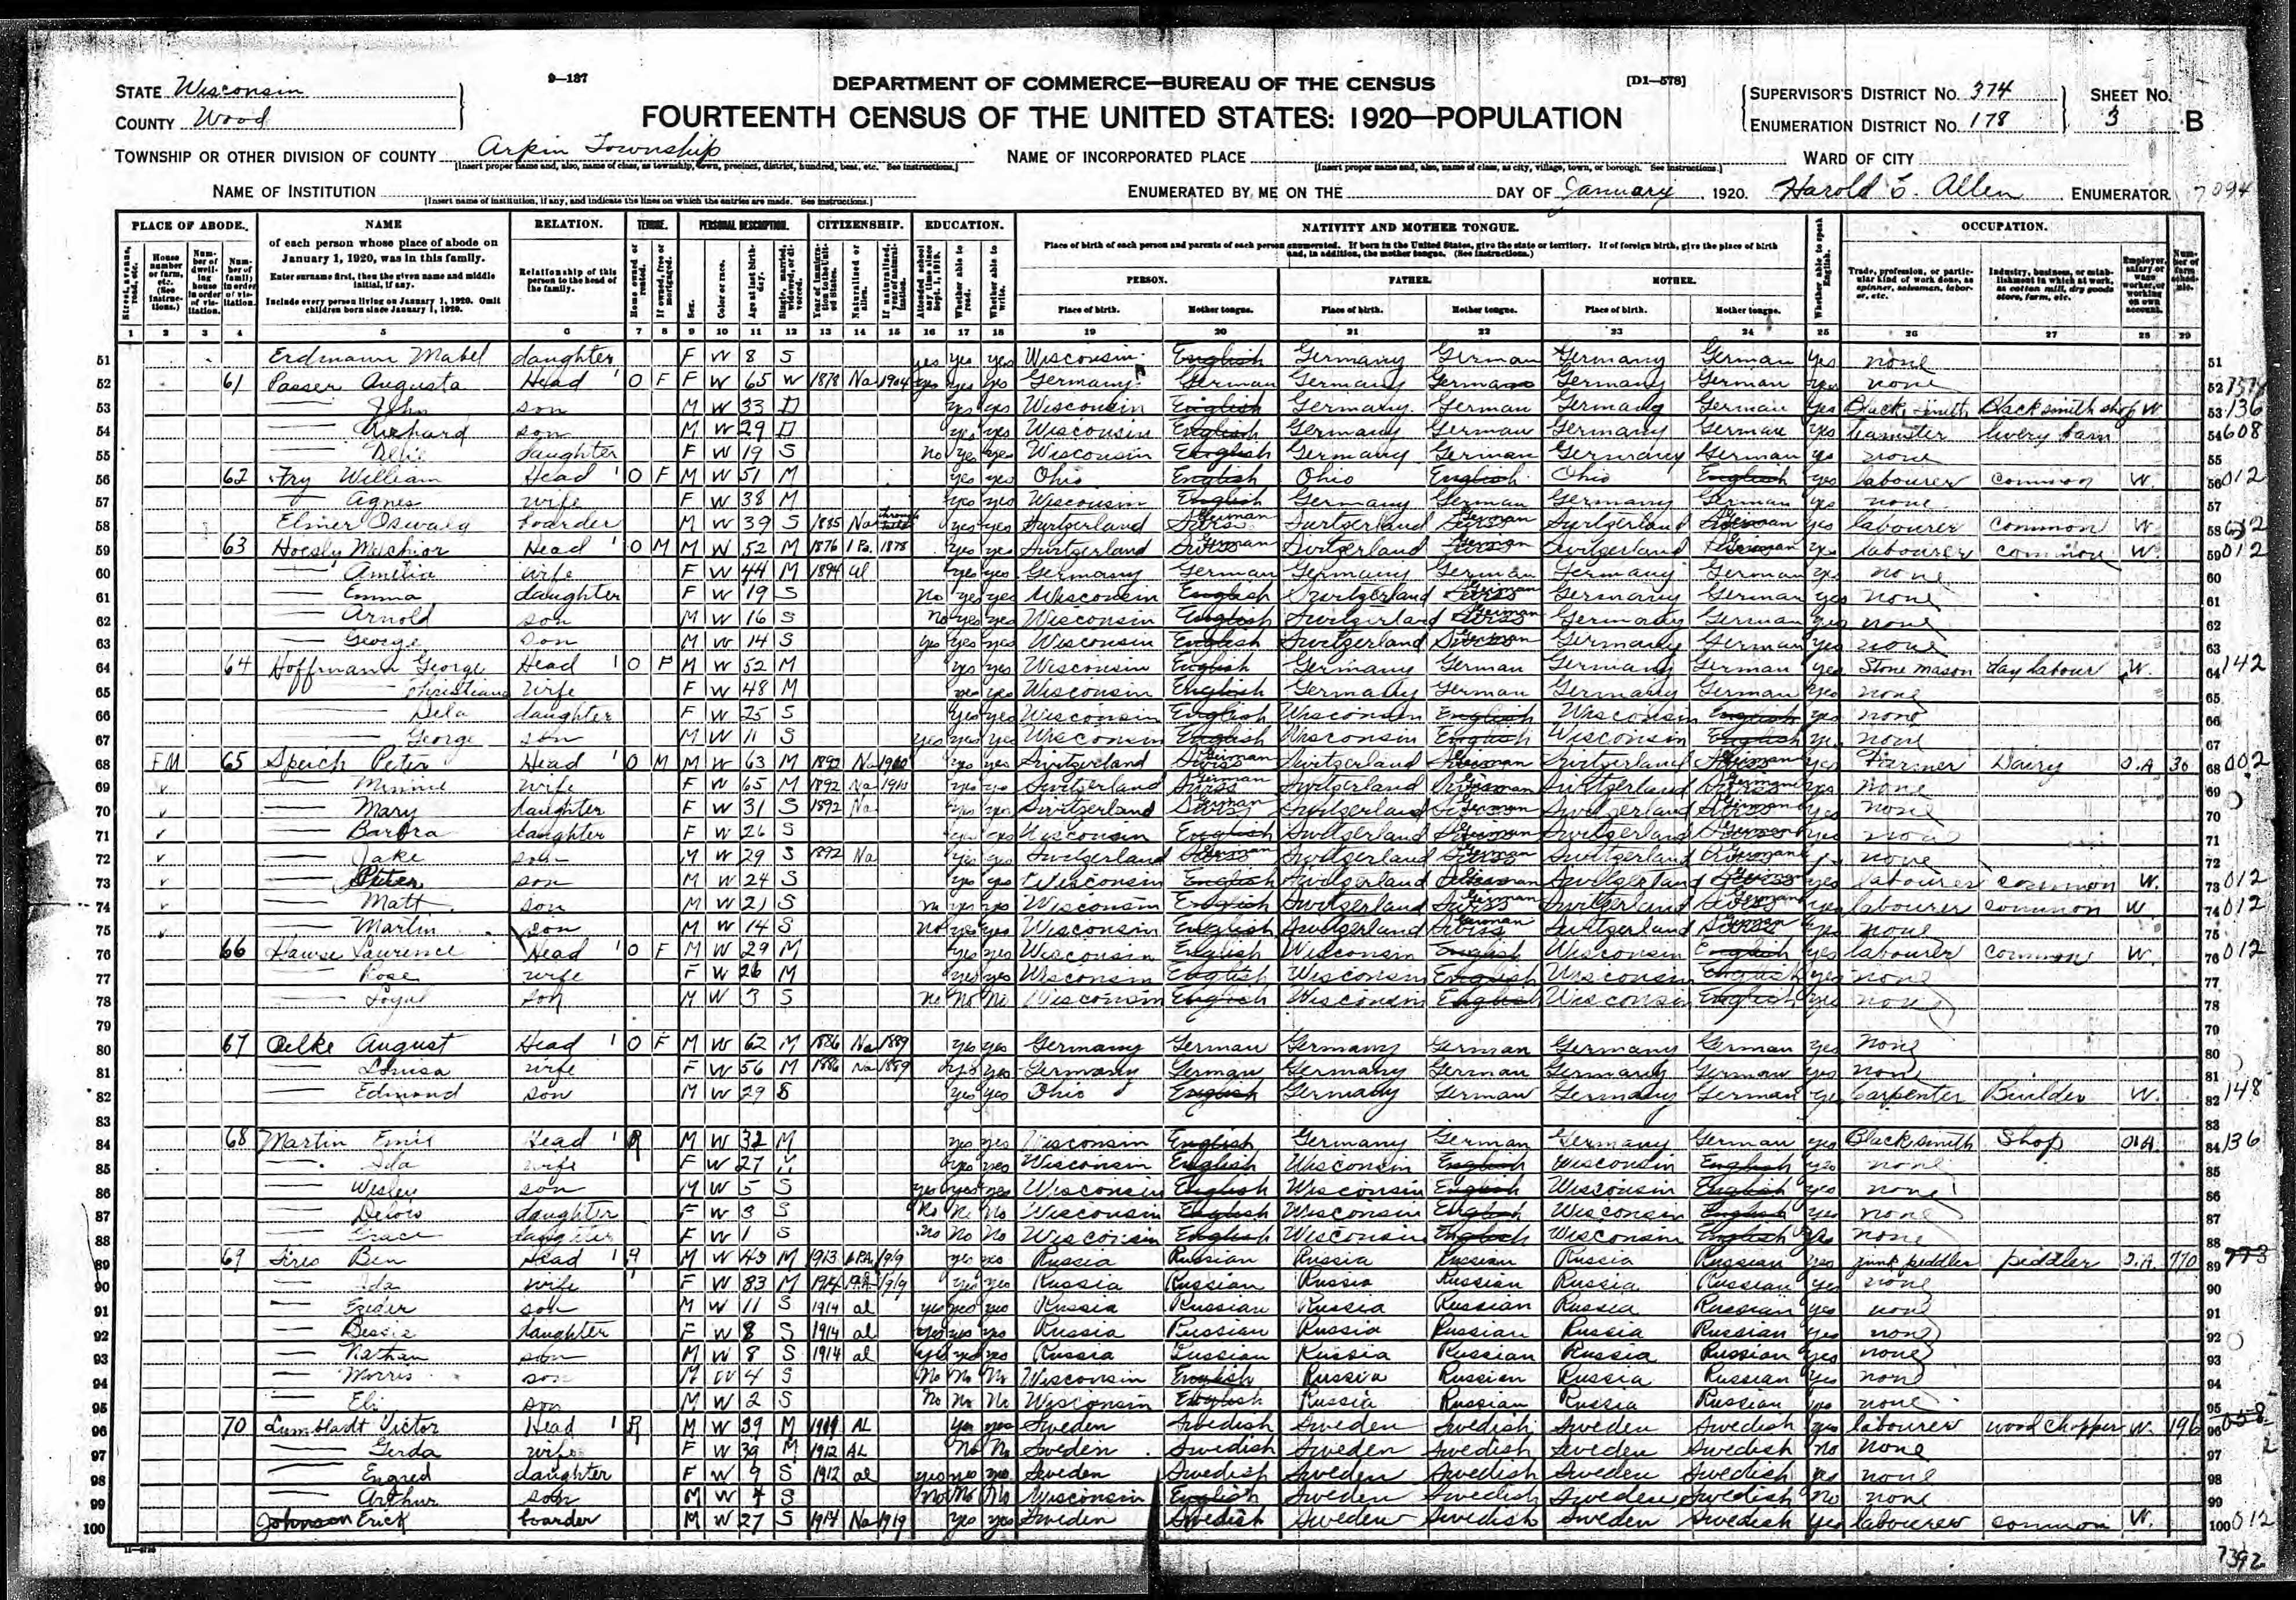 9—187
DEPARTMENT OF COMMERCE—BUREAU OF THE CENSUS
[D1—578]
STATE Wisconsin
COUNTY Wood
FOURTEENTH CENSUS OF THE UNITED STATES: 1920—POPULATION
SUPERVISOR'S DISTRICT No. 374
ENUMERATION DISTRICT No. 178
SHEET No. 3 B
TOWNSHIP OR OTHER DIVISION OF COUNTY Arpin Township
[Insert proper name and, also, name of class, as township, town, precinct, district, hundred, beat, etc. See instructions.]
NAME OF INCORPORATED PLACE
[Insert proper name and, also, name of class, as city, village, town, or borough. See instructions.]
WARD OF CITY
NAME OF INSTITUTION
[Insert name of institution, if any, and indicate the lines on which the entries are made. See instructions.]
ENUMERATED BY ME ON THE DAY OF January, 1920. Harold E. Allen ENUMERATOR 7094
PLACE OF ABODE. NAME RELATION. TENURE. PERSONAL DESCRIPTION. CITIZENSHIP. EDUCATION. NATIVITY AND MOTHER TONGUE. OCCUPATION.
of each person whose place of abode on January 1, 1920, was in this family.
Enter surname first, then the given name and middle initial, if any.
Include every person living on January 1, 1920. Omit children born since January 1, 1920.
Relationship of this person to the head of the family.
Place of birth of each person and parents of each person enumerated. If born in the United States, give the state or territory. If of foreign birth, give the place of birth and, in addition, the mother tongue. (See instructions.)
PERSON. FATHER. MOTHER.
Place of birth. Mother tongue. Place of birth. Mother tongue. Place of birth. Mother tongue.
1 2 3 4 5 6 7 8 9 10 11 12 13 14 15 16 17 18 19 20 21 22 23 24 25 26 27 28 29
51 Erdmann Mabel daughter F W 8 S yes yes yes Wisconsin English Germany German Germany German yes none 51
52 61 Passer Augusta Head 1 O F F W 65 W 1878 Na 1904 yes yes Germany German Germany German Germany German yes none 52
53 John son M W 33 D yes yes Wisconsin English Germany German Germany German yes Black smith Blacksmith shop W 53 136
54 Richard son M W 29 D yes yes Wisconsin English Germany German Germany German yes teamster livery barn 54 608
55 daughter F W 19 S no yes yes Wisconsin English Germany German Germany German yes none 55
56 62 Fry William Head 1 O F M W 51 M yes yes Ohio English Ohio English Ohio English yes labourer common W. 56 012
57 Agnes wife F W 38 M yes yes Wisconsin English Germany German Germany German yes none 57
58 Elmer Oswald boarder M W 39 S 1885 Na yes yes Switzerland Swiss German Switzerland Swiss German Switzerland Swiss German yes labourer common W 58
59 63 Hoesly Melchior Head 1 O M M W 52 M 1876 1 Pa. 1878 yes yes Switzerland Swiss German Switzerland Swiss German Switzerland Swiss German yes labourer common W. 59 012
60 Amelia wife F W 44 M 1894 al yes yes Germany German Germany German Germany German yes none 60
61 Emma daughter F W 19 S no yes yes Wisconsin English Switzerland Swiss German Germany German yes none 61
62 Arnold son M W 16 S no yes yes Wisconsin English Switzerland Swiss German Germany German yes none 62
63 George son M W 14 S yes yes yes Wisconsin English Switzerland Swiss German Germany German yes none 63
64 64 Hoffmann George Head 1 O F M W 52 M yes yes Wisconsin English Germany German Germany German yes Stone mason day labour W. 64 142
65 Christiana wife F W 48 M yes yes Wisconsin English Germany German Germany German yes none 65
66 Dela daughter F W 25 S yes yes Wisconsin English Wisconsin English Wisconsin English yes none 66
67 George son M W 11 S yes yes yes Wisconsin English Wisconsin English Wisconsin English yes none 67
68 FM 65 Speich Peter Head 1 O M M W 63 M 1892 Na 1900 yes yes Switzerland Swiss German Switzerland Swiss German Switzerland Swiss German yes Farmer Dairy O.A 30 68 002
69 Minnie wife F W 65 M 1892 Na yes yes Switzerland Swiss German Switzerland Swiss German Switzerland Swiss German yes none 69
70 Mary daughter F W 31 S 1892 Na yes yes Switzerland Swiss German Switzerland Swiss German Switzerland Swiss German yes none 70
71 Barbra daughter F W 26 S yes yes Wisconsin English Switzerland Swiss German Switzerland Swiss German yes none 71
72 Jake son M W 29 S 1892 Na yes yes Switzerland Swiss German Switzerland Swiss German Switzerland Swiss German none 72
73 Peter son M W 24 S yes yes Wisconsin English Switzerland Swiss German Switzerland Swiss German yes labourer common W. 73 012
74 Matt son M W 21 S no yes yes Wisconsin English Switzerland Swiss German Switzerland Swiss German yes labourer common W 74 012
75 Martin son M W 14 S no yes yes Wisconsin English Switzerland Swiss German Switzerland Swiss German yes none 75
76 66 Laurence Head 1 O F M W 29 M yes yes Wisconsin English Wisconsin English Wisconsin English yes labourer common W. 76 012
77 Rose wife F W 26 M yes yes Wisconsin English Wisconsin English Wisconsin English yes none 77
78 Loyal son M W 3 S no No No Wisconsin English Wisconsin English Wisconsin English yes none 78
79 79
80 67 Oelke August Head 1 O F M W 62 M 1886 Na 1889 yes yes Germany German Germany German Germany German yes none 80
81 Louisa wife F W 56 M 1886 Na 1889 yes yes Germany German Germany German Germany German yes none 81
82 Edmond son M W 29 S yes yes Ohio English Germany German Germany German yes Carpenter Builder W. 82 148
83 83
84 68 Martin Emil Head 1 R M W 32 M yes yes Wisconsin English Germany German Germany German yes Blacksmith Shop O.A. 84 136
85 Ida wife F W 27 M yes yes Wisconsin English Wisconsin English Wisconsin English yes none 85
86 Wesley son M W 5 S yes yes yes Wisconsin English Wisconsin English Wisconsin English yes none 86
87 Delois daughter F W 3 S No No No Wisconsin English Wisconsin English Wisconsin English yes none 87
88 Grace daughter F W 1 S No No No Wisconsin English Wisconsin English Wisconsin English none 88
89 69 Ben Head 1 R M W 43 M 1913 1919 yes yes Russia Russian Russia Russian Russia Russian yes junk peddler peddler O.A. 770 89 773
90 Ida wife F W 33 M 1914 1919 yes yes Russia Russian Russia Russian Russia Russian yes none 90
91 son M W 11 S 1914 al yes yes yes Russia Russian Russia Russian Russia Russian yes none 91
92 Bessie daughter F W 8 S 1914 al yes yes yes Russia Russian Russia Russian Russia Russian yes none 92
93 Nathan son M W 8 S 1914 al yes yes yes Russia Russian Russia Russian Russia Russian yes none 93
94 Morris son M W 4 S No No No Wisconsin English Russia Russian Russia Russian yes none 94
95 Eli son M W 2 S No No No Wisconsin English Russia Russian Russia Russian none 95
96 70 Lumbladt Victor Head 1 R M W 39 M AL yes yes Sweden Swedish Sweden Swedish Sweden Swedish yes labourer wood chopper W. 196 96 058
97 Gerda wife F W 39 M 1912 AL No No Sweden Swedish Sweden Swedish Sweden Swedish no none 97
98 Engred daughter F W 9 S 1912 al yes yes yes Sweden Swedish Sweden Swedish Sweden Swedish yes none 98
99 Arthur son M W 4 S No No No Wisconsin English Sweden Swedish Sweden Swedish No none 99
100 Johnson Erick boarder M W 27 S Na 1919 yes yes Sweden Swedish Sweden Swedish Sweden Swedish yes labourer common W. 100 012
7392